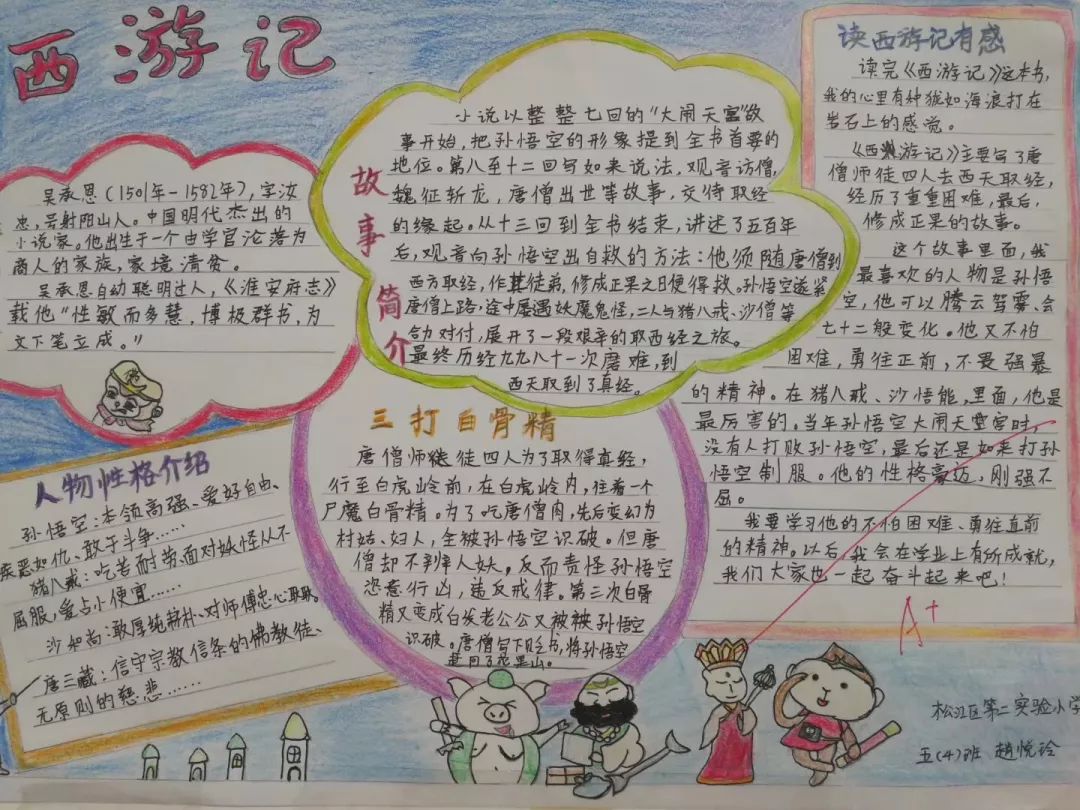 西游记
吴承恩(1501年-1582年),字汝
忠,号射阳山人。中国明代杰出的
小说家。他出生于一个由学官沦落为
商人的家族,家境清贫。
吴承恩自幼聪明过人,《淮安府志》
载他“性敏而多慧,博极群书,为
文下笔立成。”
故事简介
小说以整整七回的“大闹天宫”故
事开始,把孙悟空的形象提到全书首要的
地位。第八至十二回写如来说法,观音访僧,
魏征斩龙,唐僧出世等故事,交待取经
的缘起。从十三回到全书结束,讲述了五百年
后,观音向孙悟空出自救的方法:他须随唐僧到
西方取经,作其徒弟,修成正果之日便得救。孙悟空遂紧
唐僧上路,途中屡遇妖魔鬼怪,二人与猪八戒、沙僧等
合力对付,展开了一段艰辛的取西经之旅。
最终历经九九八十一次磨难,到
西天取到了真经。
读西游记有感
读完《西游记》这本书,
我的心里有种犹如海浪打在
岩石上的感觉。
《西游记》主要写了唐
僧师徒四人去西天取经,
经历了重重困难,最后,
修成正果的故事。
这个故事里面,我
最喜欢的人物是孙悟
空,他可以腾云驾雾、会
七十二般变化。他又不怕
困难,勇往正前,不畏强暴
的精神。在猪八戒、沙悟能,里面,他是
最厉害的。当年孙悟空大闹天宫时,
没有人打败孙悟空,最后还是如来打孙
悟空制服。他的性格豪迈,刚强不
屈。
我要学习他的不怕困难、勇往直前
的精神。以后,我会在学业上有所成就,
我们大家也一起奋斗起来吧!
A+
三打白骨精
唐僧师徒四人为了取得真经,
行至白虎岭前,在白虎岭内,住着一个
尸魔白骨精。为了吃唐僧肉,先后变幻为
村姑、妇人,全被孙悟空识破。但唐
僧却不辨人妖,反而责怪孙悟空
恣意行凶,违反戒律。第三次白骨
精又变成白发老公公又被孙悟空
识破。唐僧写下贬书,将孙悟空
赶回了花果山。
人物性格介绍
孙悟空:本领高强、爱好自由、
疾恶如仇、敢于斗争……
猪八戒:吃苦耐劳、面对妖怪从不
屈服,爱占小便宜……
沙和尚:敦厚纯朴、对师傅忠心耿耿。
唐三藏:信守宗教信条的佛教徒、
无原则的慈悲……
松江区第二实验小学
五(4)班 赵悦玲